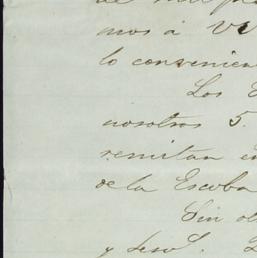 mos á V
lo convenien
Los
nosotros 5.
remitan en
de la Escoba
Sin ob